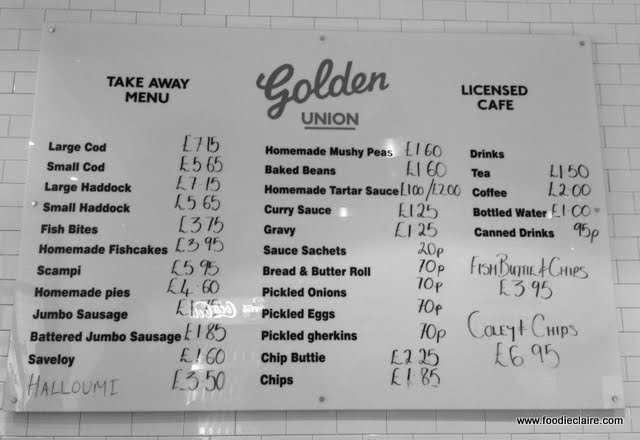 TAKE AWAY
MENU
Golden
UNION
LICENSED
CAFE
Large Cod £7 15
Small Cod £5 65
Large Haddock £7 15
Small Haddock £5 65
Fish Bites £3 75
Homemade Fishcakes £3 95
Scampi £5 95
Homemade pies £4 60
Jumbo Sausage
Battered Jumbo Sausage £1 85
Saveloy £1 60
HALLOUMI £3 50
Homemade Mushy Peas £1 60
Baked Beans £1 60
Homemade Tartar Sauce £1 00/£2 00
Curry Sauce £1 25
Gravy £1 25
Sauce Sachets 20p
Bread & Butter Roll 70p
Pickled Onions 70p
Pickled Eggs 70p
Pickled gherkins 70p
Chip Buttie £2 25
Chips £1 85
Drinks
Tea £1 50
Coffee £2 00
Bottled Water £1 00
Canned Drinks 95p
FISH BUTTIE & CHIPS
£3 95
COLEY & CHIPS
£6 95
www.foodieclaire.com